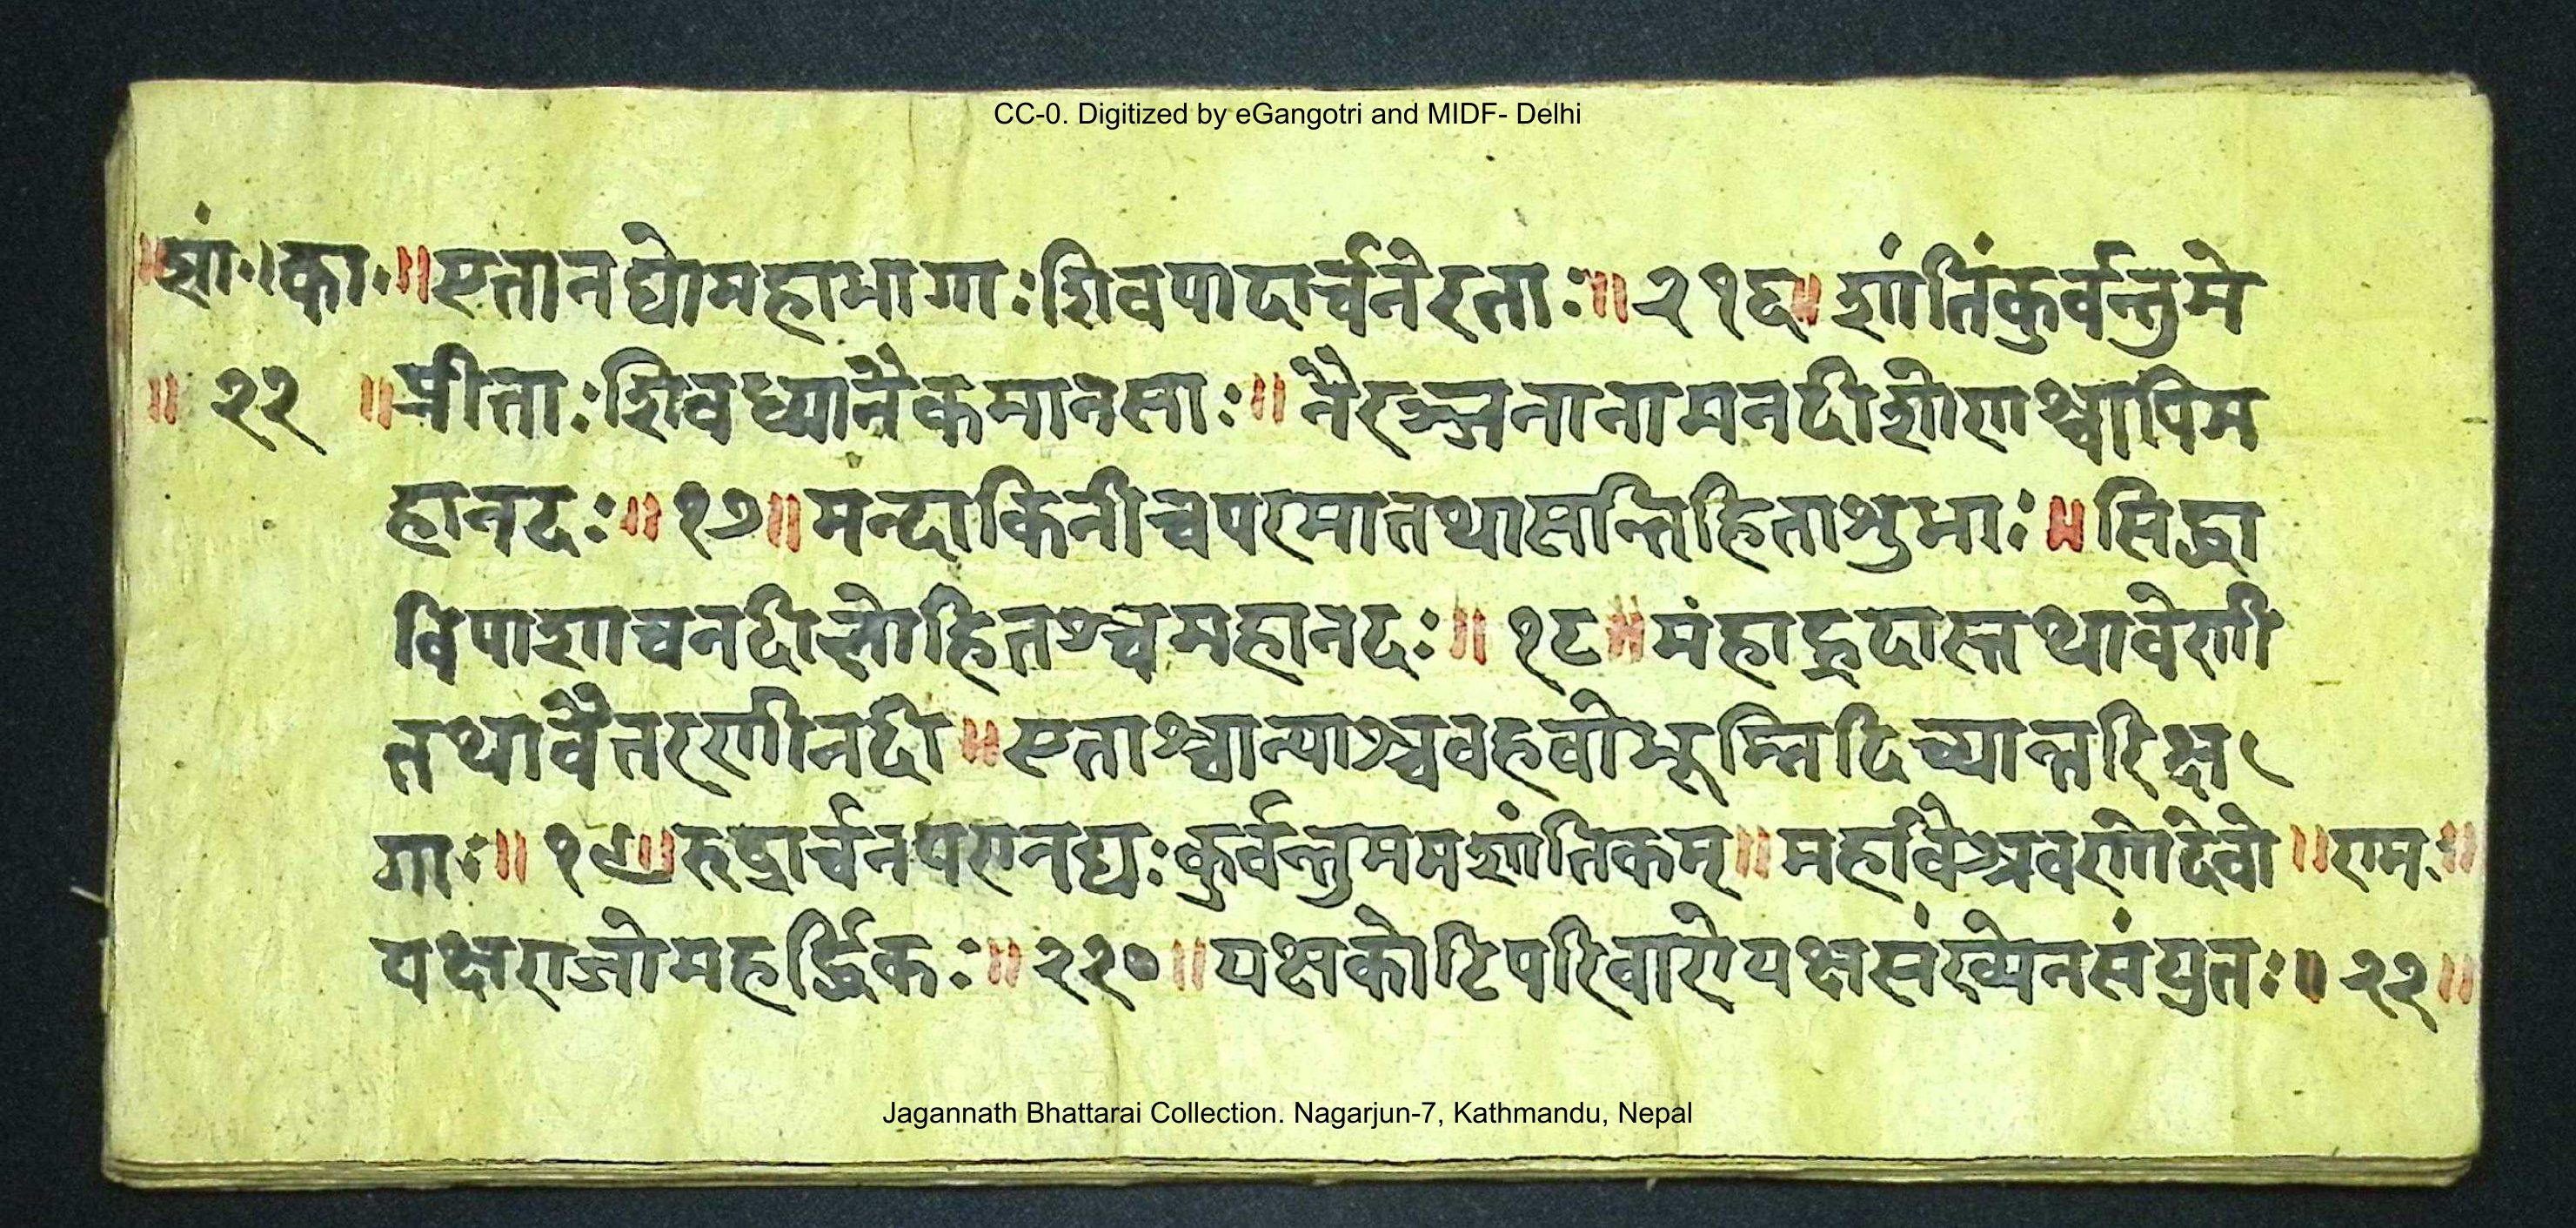 CC-0. Digitized by eGangotri and MIDF- Delhi
॥शां॰।का॰॥एतानद्योमहाभागाःशिवपादार्चनेरताः॥२१६॥शांतिंकुर्वन्तुमे
॥२२॥प्रीताःशिवध्यानैकमानसाः॥नैरञ्जनानामनदीशोणश्चापिम
हानदः॥१७॥मन्दाकिनीचपरमातथासन्निहिताशुभाः॥सिद्धा
विपाशाचनदीलोहितश्चमहानदः॥१८॥मंहाह्रदास्तथावेणी
तथावैतरणीनदी॥एताश्चान्याश्चवहवोभूम्निदिव्यान्तरिक्ष
गाः॥१९॥रुद्रार्चनपरानद्यःकुर्वन्तुममशांतिकम्॥महावैश्रवणोदेवो॥राम॰॥
यक्षराजोमहर्द्धिकः॥२२०॥यक्षकोटिपरिवारोयक्षसंख्येनसंयुतः॥२२॥
Jagannath Bhattarai Collection. Nagarjun-7, Kathmandu, Nepal